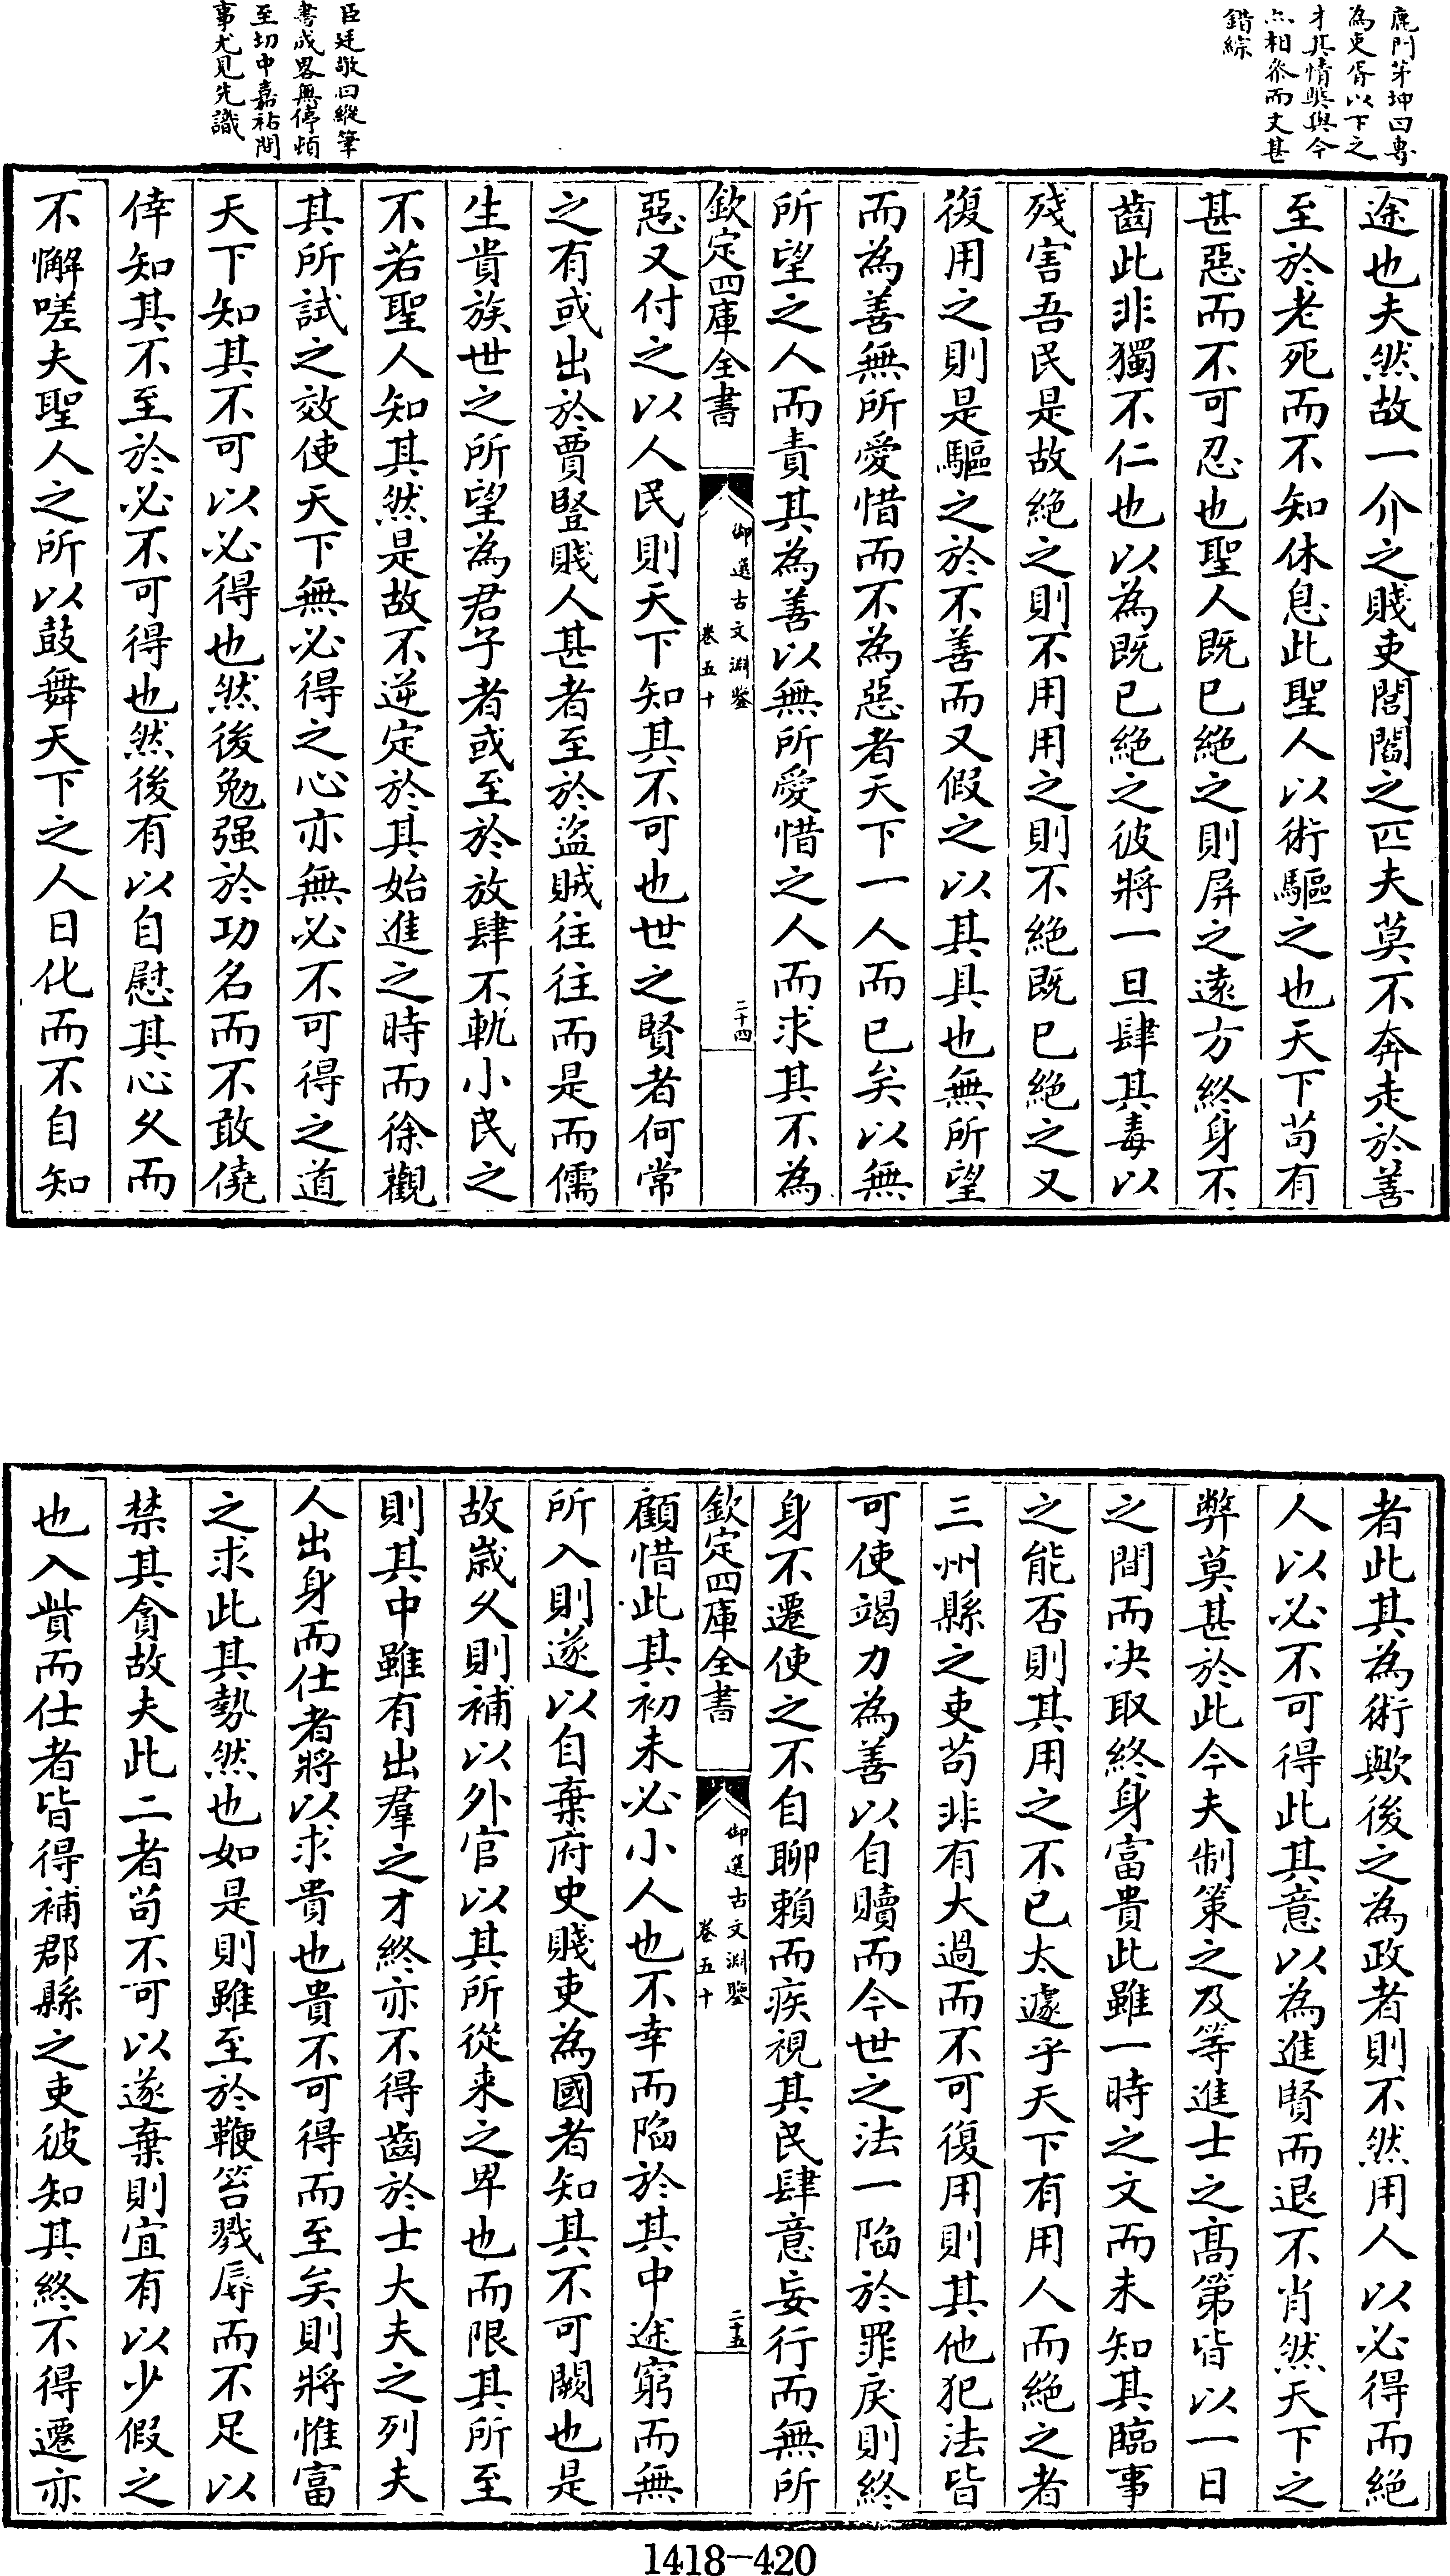 鹿門茅坤曰專
為吏胥以下之
才其情獘與今
亦相叅而文甚
錯綜
臣廷敬曰縱筆
書成畧無停頓
至切中嘉祐間
事尤見先識
途也夫然故一介之賤吏閭閻之匹夫莫不奔走於善
至於老死而不知休息此聖人以術驅之也天下苟有
甚惡而不可忍也聖人既已絶之則屏之逺方終身不
齒此非獨不仁也以為既已絶之彼將一旦肆其毒以
殘害吾民是故絶之則不用用之則不絶既已絶之又
復用之則是驅之於不善而又假之以其具也無所望
而為善無所愛惜而不為惡者天下一人而已矣以無
所望之人而責其為善以無所愛惜之人而求其不為
欽定四庫全書
御選古文淵鑒
卷五十
二十四
惡又付之以人民則天下知其不可也世之賢者何常
之有或出於賈豎賤人甚者至於盜賊往往而是而儒
生貴族世之所望為君子者或至於放肆不軌小民之
不若聖人知其然是故不逆定於其始進之時而徐觀
其所試之效使天下無必得之心亦無必不可得之道
天下知其不可以必得也然後勉强於功名而不敢僥
倖知其不至於必不可得也然後有以自慰其心久而
不懈嗟夫聖人之所以鼓舞天下之人日化而不自知
者此其為術歟後之為政者則不然用人以必得而絶
人以必不可得此其意以為進賢而退不肖然天下之
弊莫甚於此今夫制策之及等進士之髙第皆以一日
之間而决取終身富貴此雖一時之文而未知其臨事
之能否則其用之不已太遽乎天下有用人而絶之者
三州縣之吏苟非有大過而不可復用則其他犯法皆
可使竭力為善以自贖而今世之法一陷於罪戾則終
身不遷使之不自聊賴而疾視其民肆意妄行而無所
欽定四庫全書
御選古文淵鑒
卷五十
二十五
顧惜此其初未必小人也不幸而陷於其中途窮而無
所入則遂以自棄府史賤吏為國者知其不可闕也是
故歲久則補以外官以其所從来之卑也而限其所至
則其中雖有出羣之才終亦不得齒於士大夫之列夫
人出身而仕者將以求貴也貴不可得而至矣則將惟富
之求此其勢然也如是則雖至於鞭笞戮辱而不足以
禁其貪故夫此二者苟不可以遂棄則宜有以少假之
也入貲而仕者皆得補郡縣之吏彼知其終不得遷亦
1418—420